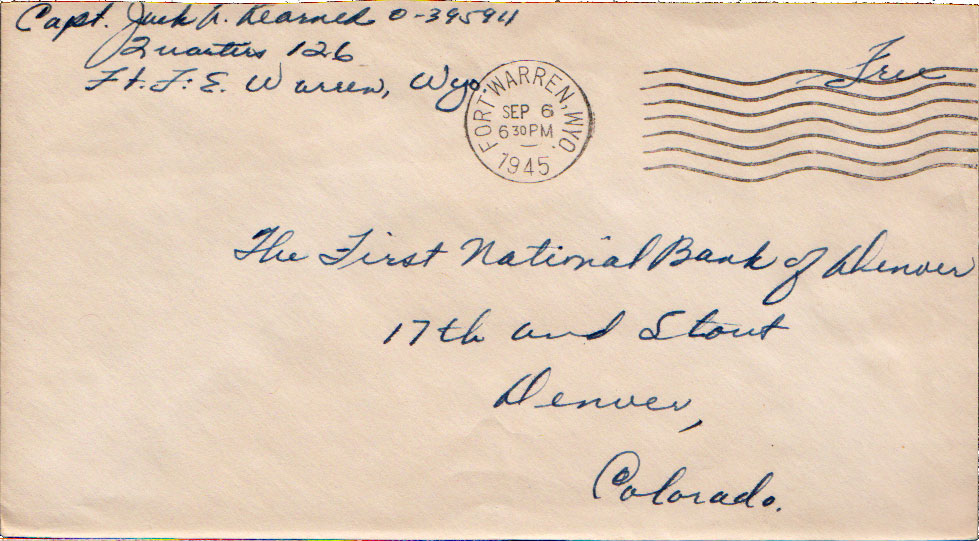 Capt. Jack A. Kearned 0-395941
Quarters 126
Ft. F. E. Warren, Wyo.
Free
FORT WARREN, WYO.
SEP 6
6 30 PM
1945
The First National Bank of Denver
17th and Stout
Denver,
Colorado.